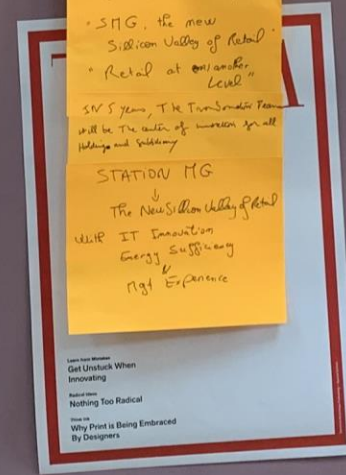 "SMG, the new
Sillicon Valley of Retail"
"Retail at another
Level"
IN 5 years, The Transformation Team
will be The center of innovation for all
Holdings and Subsidiary
STATION MG
↓
The New Sillicon Valley of Retail
with IT Innovation
Energy Sufficiency
Mgt Experience
Learn from Mistakes
Get Unstuck When
Innovating
Radical Ideas
Nothing Too Radical
Why Print is Being Embraced
By Designers